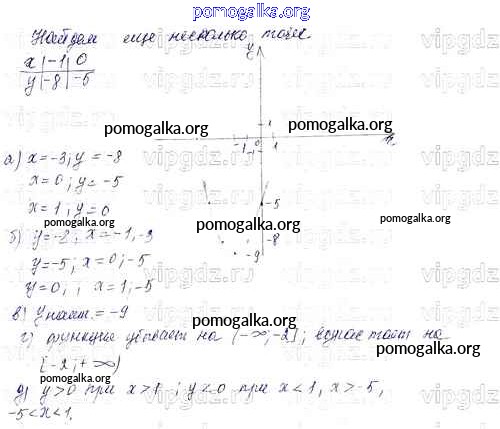 pomogalka.org
Найдем еще несколько точек.
x | -1 | 0
y | -8 | -5
y
1
-1 0 1
-1
-5
-8
-9
а) x=-3; y=-8
x=0; y=-5
x=1; y=0
б) y=-8; x=-1,-3
y=-5; x=0; -5
y=0, ; x=1,-5
в) y наим.=-9
г) функция убывает на (-∞;-2]; возрастает на
[-2;+∞)
д) y>0 при x>1; y<0 при x<1, x>-5,
-5<x<1.
pomogalka.org
pomogalka.org
pomogalka.org
pomogalka.org
pomogalka.org
pomogalka.org
pomogalka.org
pomogalka.org
vipgdz.ru